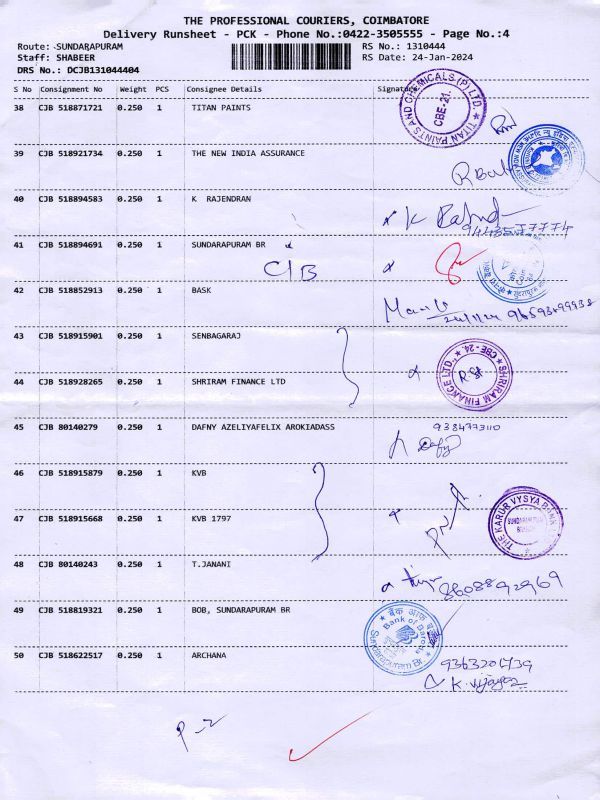 THE PROFESSIONAL COURIERS, COIMBATORE
Delivery Runsheet - PCK - Phone No.:0422-3505555 - Page No.:4
Route: SUNDARAPURAM
RS No.: 1310444
Staff: SHABEER
RS Date: 24-Jan-2024
DRS No.: DCJB131044404
S No Consignment No Weight PCS Consignee Details Signature
38 CJB 518871721 0.250 1 TITAN PAINTS
TITAN PAINTS AND CHEMICALS (P) LTD.
CBE-21.
39 CJB 518921734 0.250 1 THE NEW INDIA ASSURANCE
40 CJB 518894583 0.250 1 K RAJENDRAN
41 CJB 518894691 0.250 1 SUNDARAPURAM BR
C/B
42 CJB 518852913 0.250 1 BASK
43 CJB 518915901 0.250 1 SENBAGARAJ
44 CJB 518928265 0.250 1 SHRIRAM FINANCE LTD
SHRIRAM FINANCE LTD.
CBE-24.
45 CJB 80140279 0.250 1 DAFNY AZELIYAFELIX AROKIADASS
9384773110
Dafy
46 CJB 518915879 0.250 1 KVB
47 CJB 518915668 0.250 1 KVB 1797
THE KARUR VYSYA BANK
SUNDARAPURAM
48 CJB 80140243 0.250 1 T.JANANI
8608892969
49 CJB 518819321 0.250 1 BOB, SUNDARAPURAM BR
बैंक ऑफ
Bank of Baroda
Sundarapuram Br.
50 CJB 518622517 0.250 1 ARCHANA
K. Vijaya
P-2